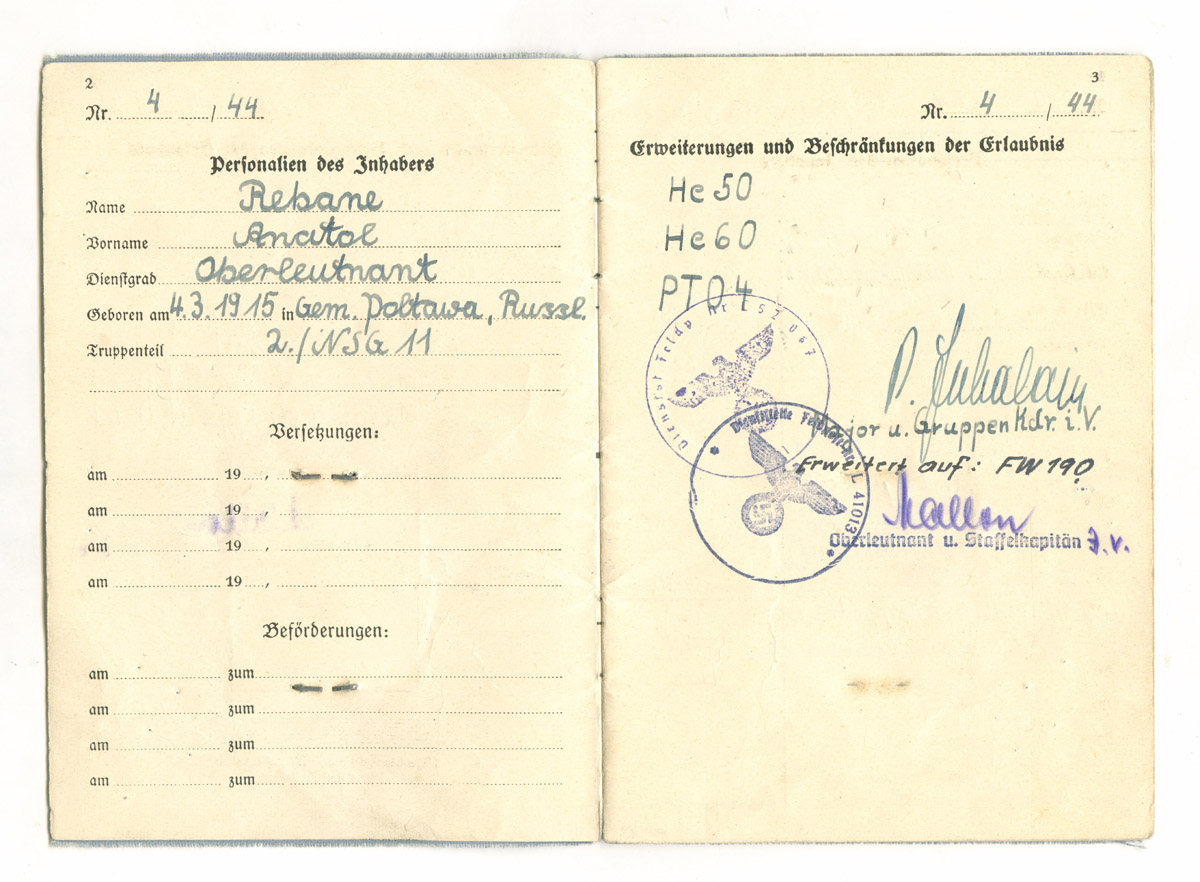 2
Nr. 4 / 44
Personalien des Inhabers
Name Rebane
Vorname Anatol
Dienstgrad Oberleutnant
Geboren am 4.3.1915 in Gem. Poltawa, Russl.
Truppenteil 2./NSG 11
Versetzungen:
am 19 ,
am 19 ,
am 19 ,
am 19 ,
Beförderungen:
am zum
am zum
am zum
am zum
3
Nr. 4 / 44
Erweiterungen und Beschränkungen der Erlaubnis
He 50
He 60
PTO 4
Dienstst Feldp Nr L 52067
P.
Major u. Gruppen Kdr. i.V.
Dienststelle Feldpost Nr. L 41013
Erweitert auf: FW 190
Oberleutnant u. Staffelkapitän J.V.